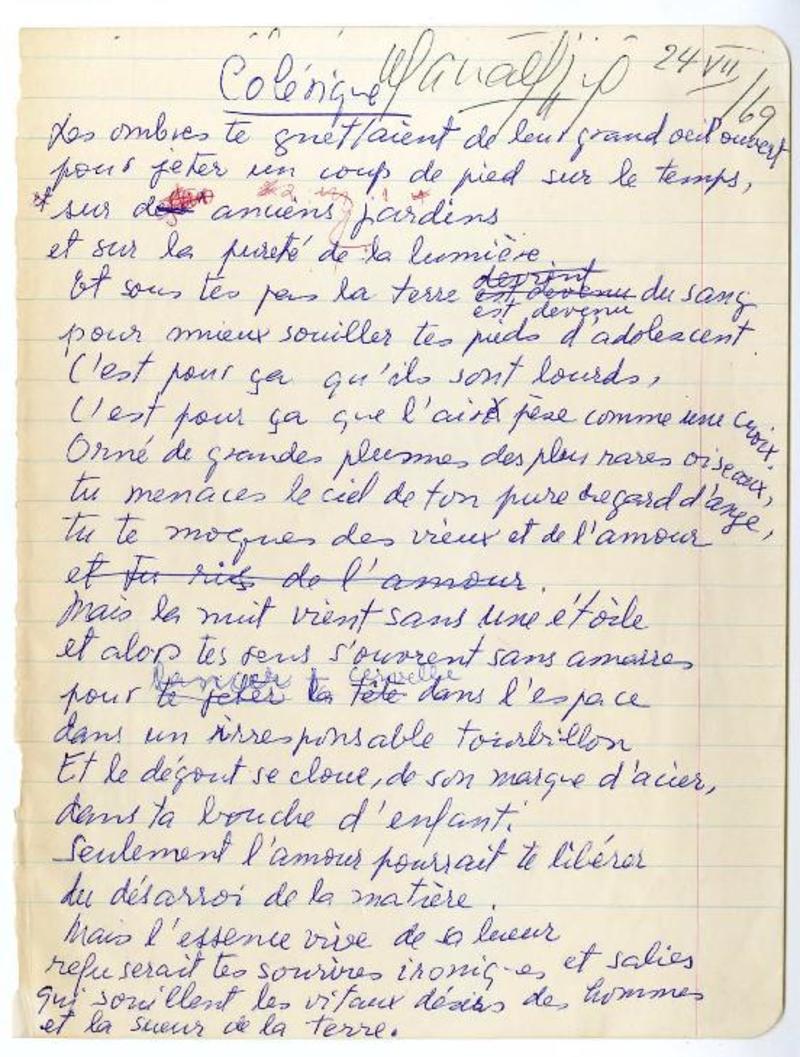 Colérique
24 VII/69
Les ombres te guettaient de leur grand oeil ouvert
pour jeter un coup de pied sur le temps,
* sur des anciens jardins
et sur la pureté de la lumière
devint
Et sous tes pas la terre est devenu du sang
est devenu
pour mieux souiller tes pieds d'adolescent.
C'est pour ça qu'ils sont lourds,
C'est pour ça que l'air pèse comme une croix.
Orné de grandes plusmes des plus rares oiseaux,
tu menaces le ciel de ton pure regard d'ange,
tu te moques des vieux et de l'amour
et tu ris de l'amour.
Mais la nuit vient sans une étoile
et alors tes sens s'ouvrent sans amarres
lancer cervelle
pour te jeter la tête dans l'espace
dans un irresponsable tourbillon
Et le dégout se cloue, de son marque d'acier,
dans ta bouche d'enfant.
Seulement l'amour pourrait te libérer
du désarroi de la matière.
Mais l'essence vive de sa lueur
refuserait tes sourires ironiques et salies
qui souillent les vitaux désirs des hommes
et la sueur de la terre.